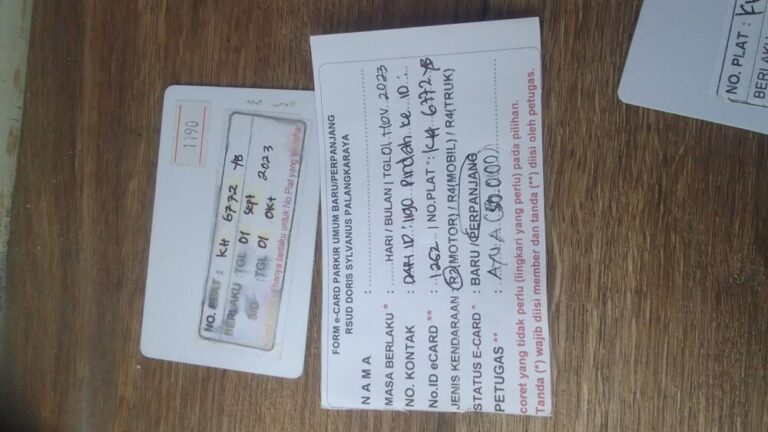 1190
NO. PLAT : KH 6772 YB
BERLAKU TGL 01 Sept 2023
S/D : TGL 01 OKt
hanya berlaku untuk No.Plat yang
FORM e-CARD PARKIR UMUM BARU/PERPANJANG
RSUD DORIS SYLVANUS PALANGKARAYA
N A M A :
MASA BERLAKU * : HARI / BULAN | TGL 01, NOV 2023
NO. KONTAK : DARI ID : 1190 Pindah ke ID :
No.ID eCARD ** : 1262 | NO.PLAT * : KH 6772 YB
JENIS KENDARAAN : R2(MOTOR) / R4(MOBIL) / R4(TRUK)
STATUS E-CARD * : BARU / PERPANJANG
PETUGAS ** : AYU.A (50.000)
coret yang tidak perlu (lingkari yang perlu) pada pilihan.
Tanda (*) wajib diisi member dan tanda (**) diisi oleh petugas.
NO. PLAT :
BERLAKU